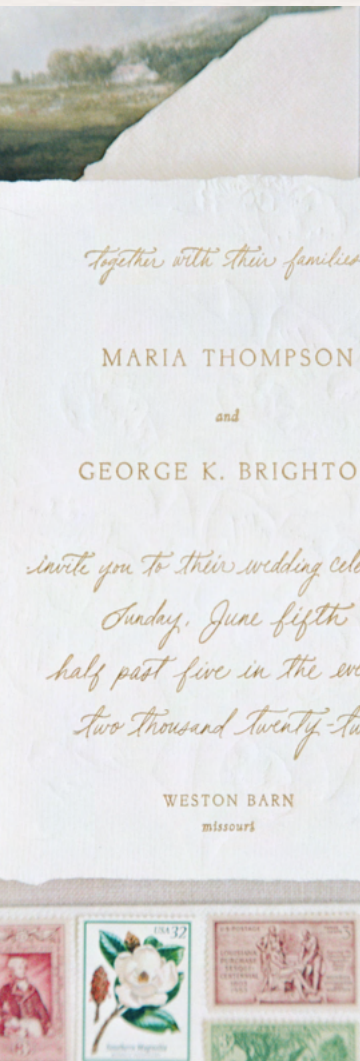 together with their families
MARIA THOMPSON
and
GEORGE K. BRIGHTO
invite you to their wedding cele
Sunday, June fifth
half past five in the eve
two thousand twenty-tw
WESTON BARN
missouri
USA 32
Southern Magnolia